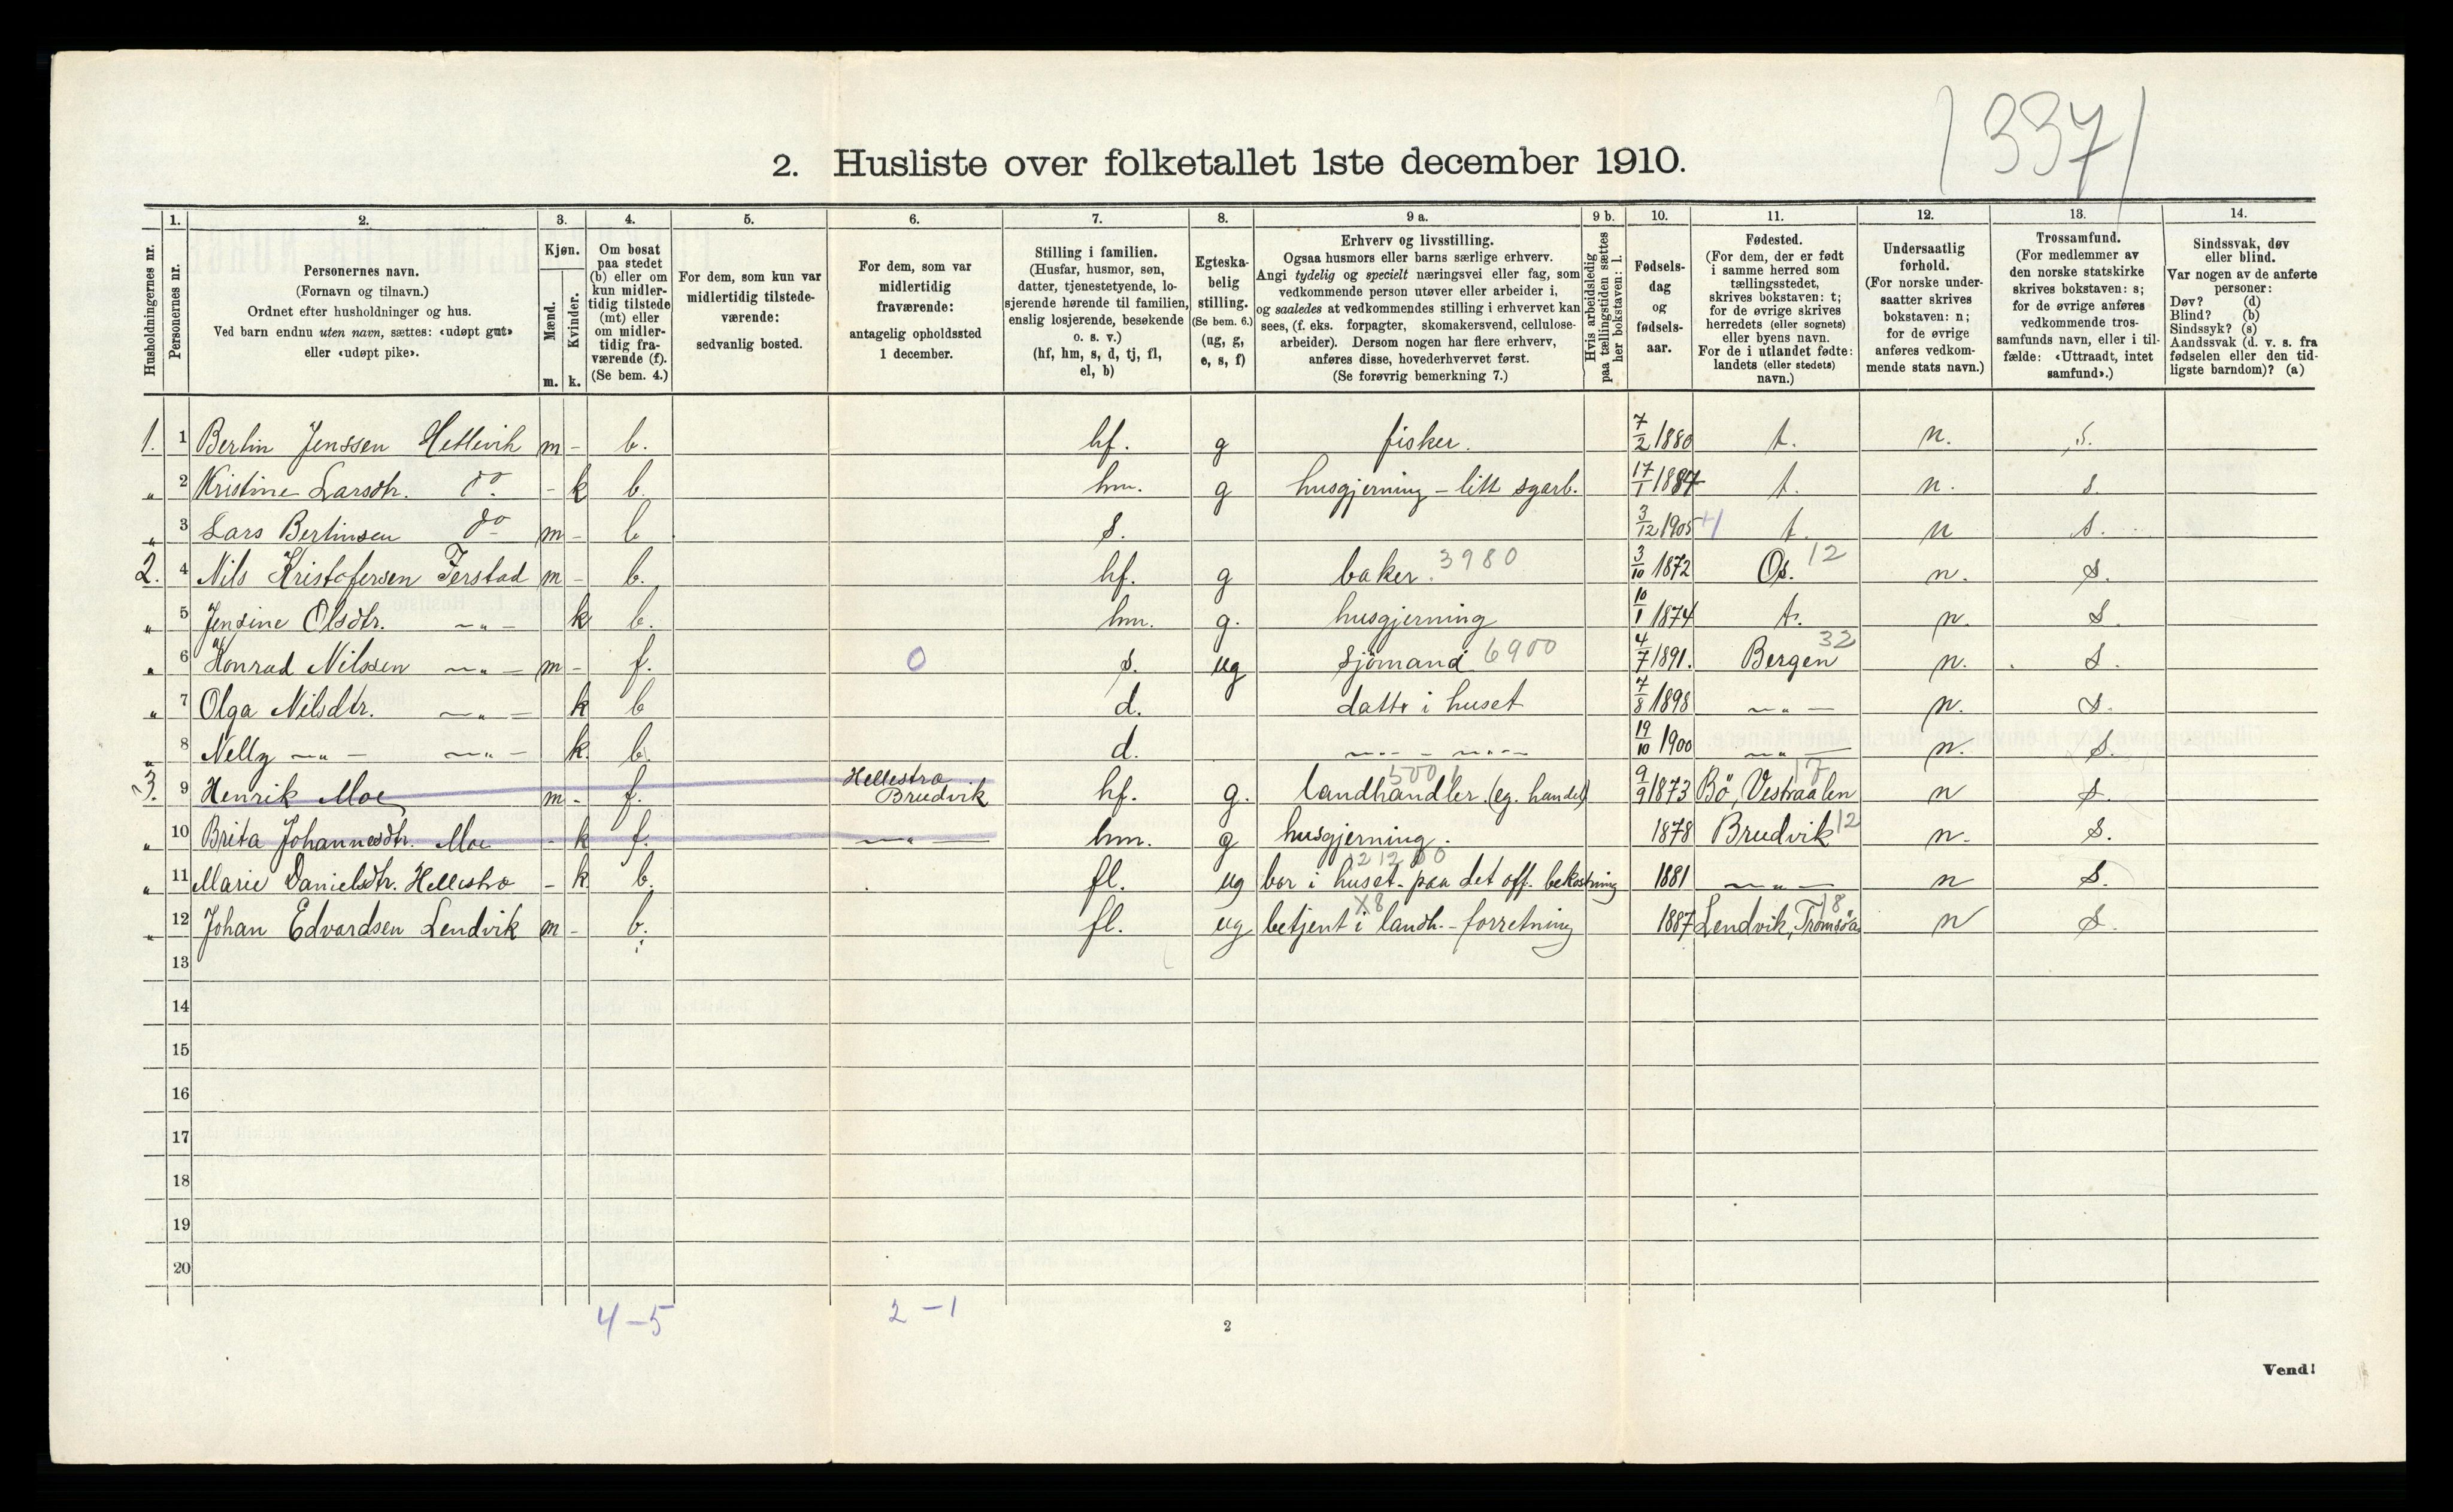 /337/
2. Husliste over folketallet 1ste december 1910.
Husholdningernes nr.
1. Personernes nr.
2. Personernes navn.
(Fornavn og tilnavn.)
Ordnet efter husholdninger og hus.
Ved barn endnu uten navn, sættes: «udøpt gut»
eller «udøpt pike».
3. Kjøn.
Mænd. m.
Kvinder. k.
4. Om bosat
paa stedet
(b) eller om
kun midler-
tidig tilstede
(mt) eller
om midler-
tidig fra-
værende (f).
(Se bem. 4.)
5. For dem, som kun var
midlertidig tilstede-
værende:
sedvanlig bosted.
6. For dem, som var
midlertidig
fraværende:
antagelig opholdssted
1 december.
7. Stilling i familien.
(Husfar, husmor, søn,
datter, tjenestetyende, lo-
sjerende hørende til familien,
enslig losjerende, besøkende
o. s. v.)
(hf, hm, s, d, tj, fl,
el, b)
8. Egteska-
belig
stilling.
(Se bem. 6.)
(ug, g,
e, s, f)
9 a. Erhverv og livsstilling.
Ogsaa husmors eller barns særlige erhverv.
Angi tydelig og specielt næringsvei eller fag, som
vedkommende person utøver eller arbeider i,
og saaledes at vedkommendes stilling i erhvervet kan
sees, (f. eks. forpagter, skomakersvend, cellulose-
arbeider). Dersom nogen har flere erhverv,
anføres disse, hovederhvervet først.
(Se forøvrig bemerkning 7.)
9 b. Hvis arbeidsledig
paa tællingstiden sættes
her bokstaven: l.
10. Fødsels-
dag
og
fødsels-
aar.
11. Fødested.
(For dem, der er født
i samme herred som
tællingsstedet,
skrives bokstaven: t;
for de øvrige skrives
herredets (eller sognets)
eller byens navn.
For de i utlandet fødte:
landets (eller stedets)
navn.)
12. Undersaatlig
forhold.
(For norske under-
saatter skrives
bokstaven: n;
for de øvrige
anføres vedkom-
mende stats navn.)
13. Trossamfund.
(For medlemmer av
den norske statskirke
skrives bokstaven: s;
for de øvrige anføres
vedkommende tros-
samfunds navn, eller i til-
fælde: «Uttraadt, intet
samfund».)
14. Sindssvak, døv
eller blind.
Var nogen av de anførte
personer:
Døv? (d)
Blind? (b)
Sindssyk? (s)
Aandssvak (d. v. s. fra
fødselen eller den tid-
ligste barndom)? (a)
1. 1 Berlin Jenssen Hetlevik m - b. hf. g fisker. 7/2 1880 t. n. s.
„ 2 Kristine Larsdtr. do. - k b. hm. g husgjerning - litt syarb. 17/1 1884 t. n. s.
„ 3 Lars Berlinsen do m - b s. 3/12 1905 t. n s.
2. 4 Nils Kristofersen Jerstad m - b. hf. g baker. 3980 3/10 1872 Os. 12 n. s.
„ 5 Jensine Olsdtr. — „ — k b. hm. g. husgjerning 10/1 1874 t. n. s.
„ 6 Konrad Nilssen — „ — m - f. 0 s. ug sjömand 6900 4/7 1891. Bergen 32 n. s.
„ 7 Olga Nilsdtr. — „ — k b d. datter i huset 7/8 1898 — „ — n. s.
„ 8 Nelly — „ — — „ — k. b. d. — „ — — „ — 19/10 1900 — „ — n. s.
3. 9 Henrik Moe m - f. Hellestro Brudvik hf. g. landhandler (eg. handel) 500 9/9 1873 Bö, Vestraalen 17 n s.
„ 10 Brita Johannesdtr. Moe - k f. — „ — hm. g husgjerning. 1878 Brudvik 12 n. s.
„ 11 Marie Danielsdtr. Hellestro - k b. fl. ug bor i huset - paa det off. bekostning 1881 — „ — n s.
„ 12 Johan Edvardsen Lendvik m - b. fl. ug betjent i landh. - forretning X8 1887 Lendvik, Tromsöa 18 n s.
13
14
15
16
17
18
19
20
4-5 2-1
2
Vend!